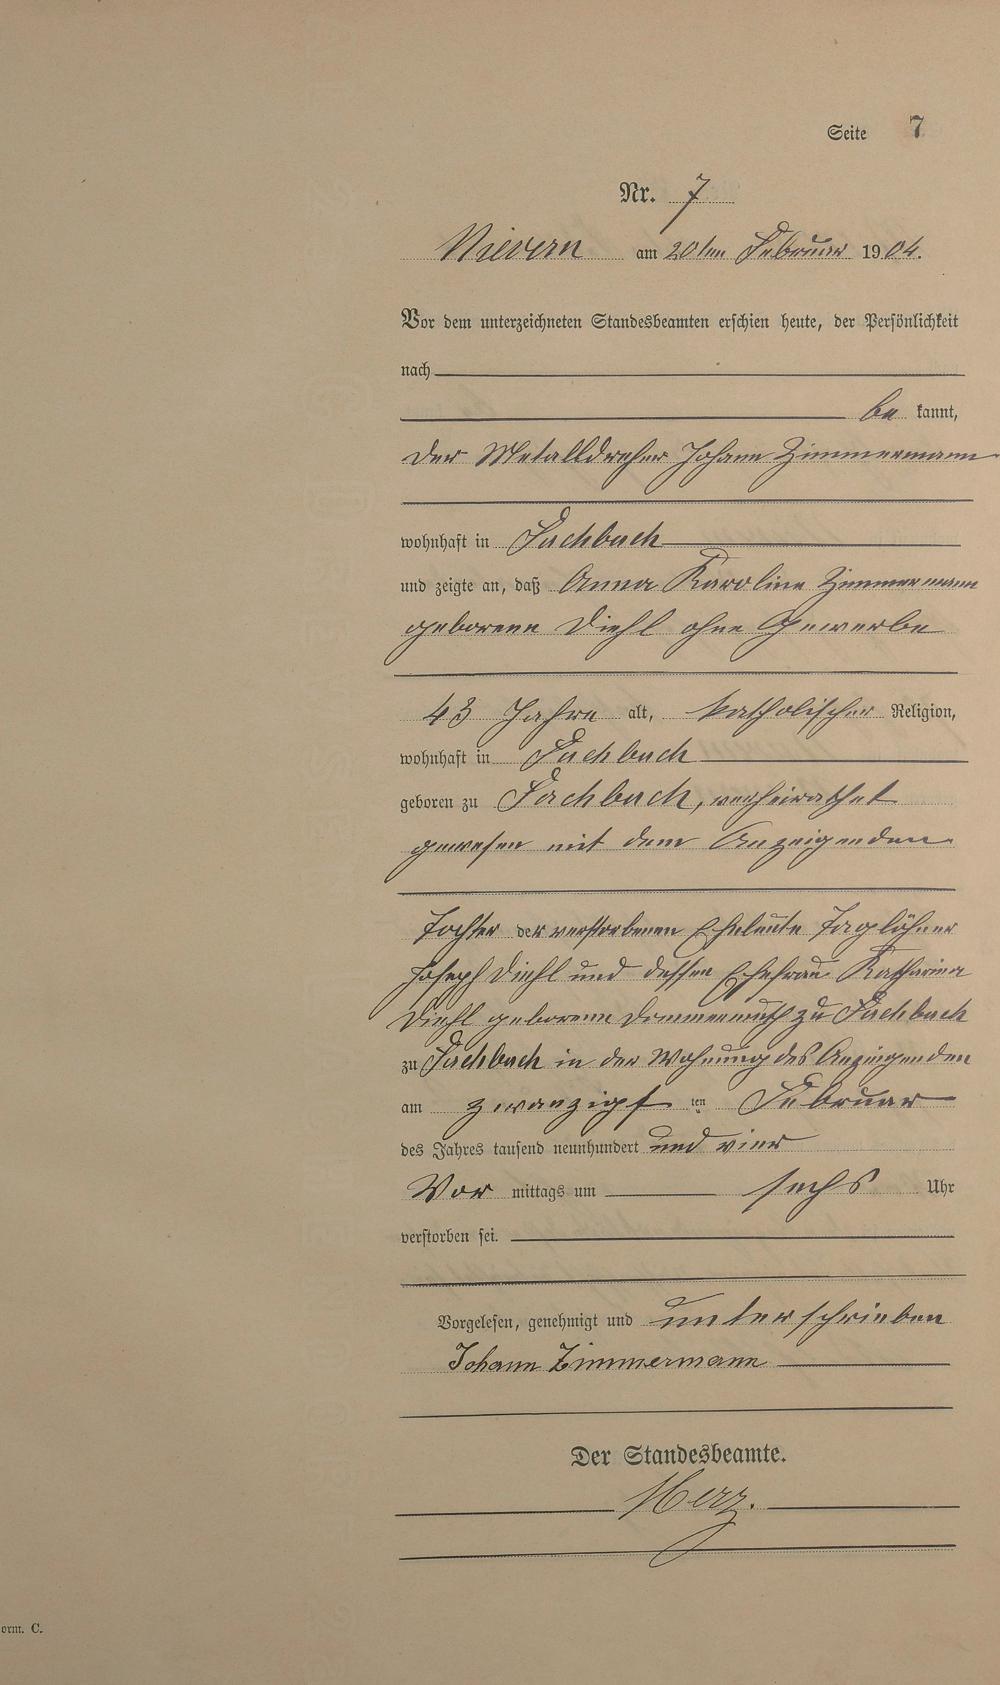 Seite 7
Nr. 7
Nievern am 20ten Februar 1904.
Vor dem unterzeichneten Standesbeamten erschien heute, der Persönlichkeit
nach
be kannt,
der Metalldreher Johann Zimmermann
wohnhaft in Fachbach
und zeigte an, daß Anna Karoline Zimmermann
geborene Diehl ohne Gewerbe
43 Jahre alt, katholischer Religion,
wohnhaft in Fachbach
geboren zu Fachbach, verheirathet
gewesen mit dem Anzeigenden
Tochter der verstorbenen Eheleute Taglöhner
Joseph Diehl und dessen Ehefrau Katharina
Diehl geborene Dommermuth zu Fachbach
zu Fachbach in der Wohnung des Anzeigenden
am zwanzigst ten Februar
des Jahres tausend neunhundert und vier
Vor mittags um sechs Uhr
verstorben sei.
Vorgelesen, genehmigt und unterschrieben
Johann Zimmermann
Der Standesbeamte.
Herz.
orm. C.